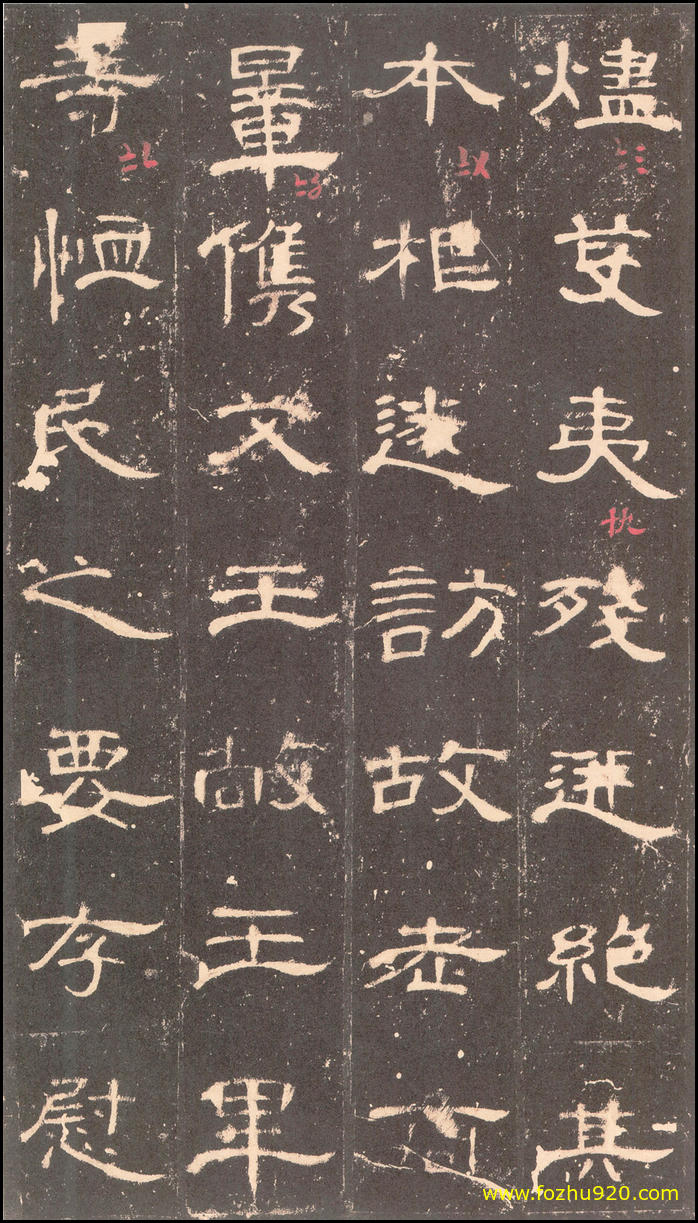 燼芟夷殘迸絕其
本根遂訪故老商
量儁艾王敞王畢
等恤民之要存慰
www.fozhu920.com